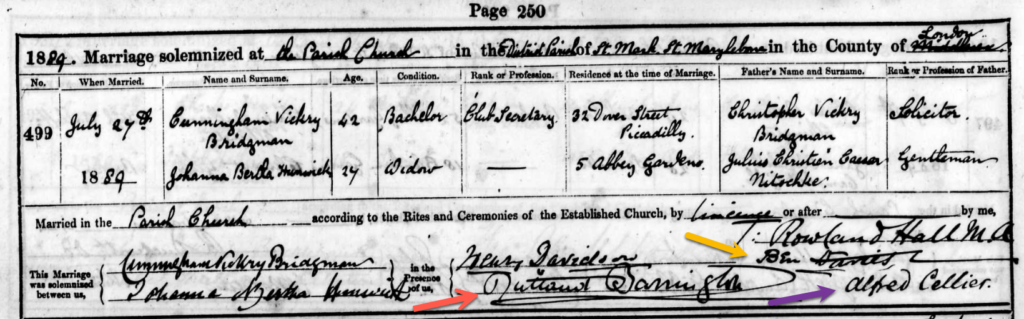 Page 250
1889. Marriage solemnized at the Parish Church in the District Parish of St. Mark St. Marylebone in the County of London Middlesex
No. When Married. Name and Surname. Age. Condition. Rank or Profession. Residence at the time of Marriage. Father's Name and Surname. Rank or Profession of Father.
499 July 27th Cunningham Vickry Bridgman 42 Bachelor Club Secretary. 32 Dover Street Picadilly. Christopher Vickry Bridgman Solicitor.
1889 Johanna Bertha 24 Widow — 5 Abbey Gardens. Julius Christien Caesar Nitschke. Gentleman
Married in the Parish Church according to the Rites and Ceremonies of the Established Church, by Licence or after by me,
J. Rowland Hall M.A
This Marriage was solemnized between us, Cunningham Vickry Bridgman Johanna Bertha in the Presence of us, Henry Davidson Ben Davies
Rutland Barrington Alfred Cellier.